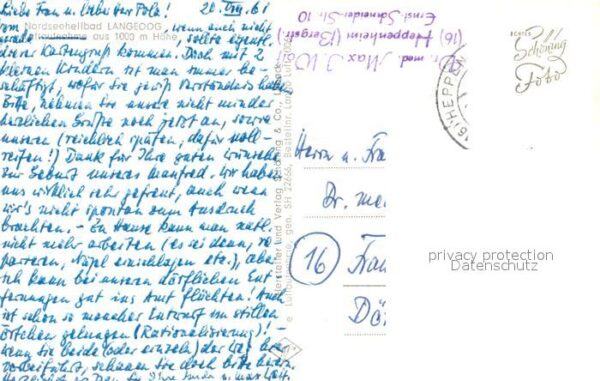 Liebe Frau u. lieber Herr Pole! 20. VIII. 61
Nordseeheilbad LANGEOOG
aus 1000 m Höhe
vom, wenn auch nicht
, sollte eigentl.
dieser Kartengruß kommen. Doch mit 2
kleinen Kindern ist man immer be-
schäftigt, wofür Sie gewiß Verständnis haben.
Bitte, nehmen Sie unsere nicht minder
herzlichen Grüße noch jetzt an, sowie
unseren (reichlich späten, dafür voll-
reifen!) Dank für Ihre guten Wünsche
zur Geburt unseres Manfred. Wir haben
uns wirklich sehr gefreut, auch wenn
wir's nicht spontan zum Ausdruck
brachten. - Zu Hause kann man natürl.
nicht mehr arbeiten (es sei denn, re-
parieren, Nägel einschlagen etc.), aber
ich kann bei unseren dörflichen Ent-
fernungen gut ins Amt flüchten! Auch
ist schon so mancher Entwurf im stillen
Örtchen gelungen (Rationalisierung)! -
wenn Sie beide (oder einzeln) der Weg
vorbeiführt, schauen Sie doch bitte herein.
Hersteller und Verlag Schöning & Co., Lübeck
gen. SH 22666, Bestellnr. Lango Luft
Dr. med. Max J.
(16) Heppenheim (Bergstr.)
Ernst-Schneider-Str. 10
(16) HEPPEN
ECHTES
Schöning
Foto
Herrn u. Frau
Dr. med.
16 Fran
Dö
privacy protection
Datenschutz